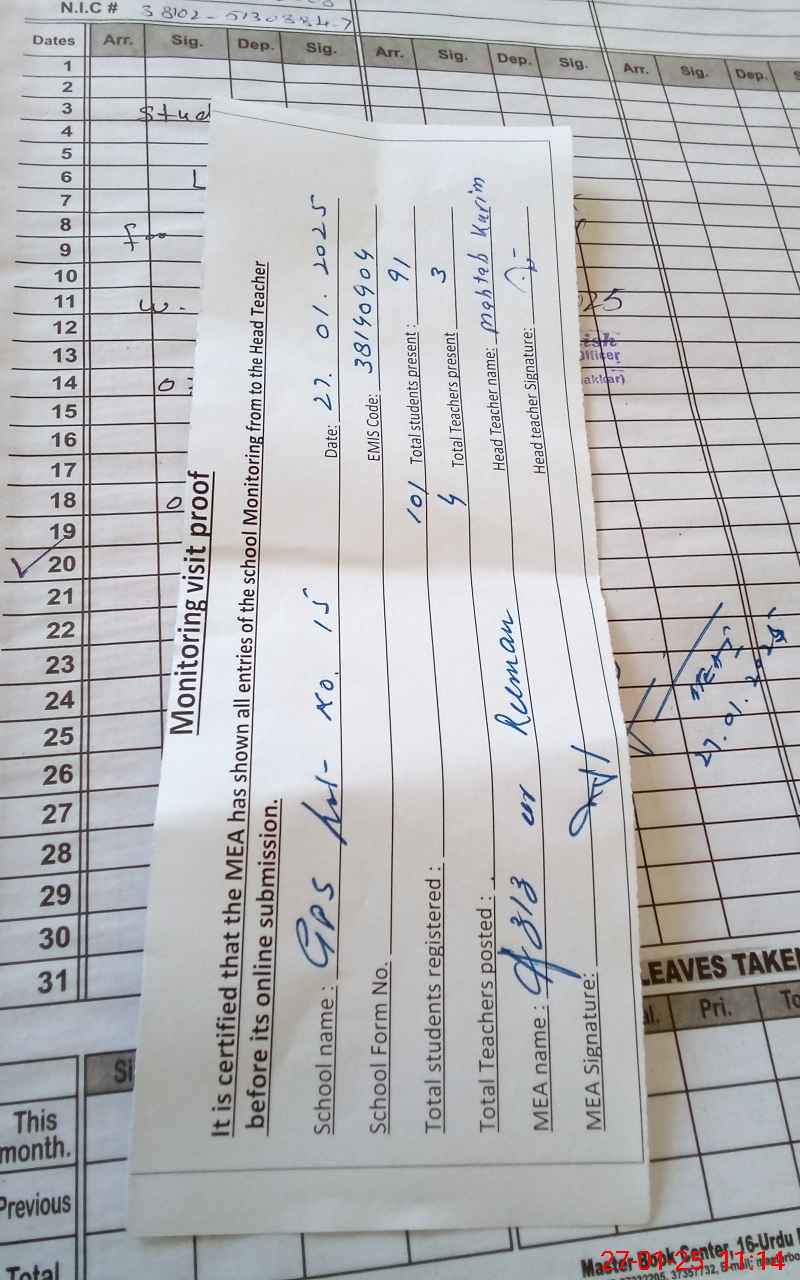 N.I.C # 38102-5130384-7
Dates Arr. Sig. Dep. Sig. Arr. Sig. Dep. Sig. Arr. Sig. Dep. S
1
2
3 Stud
4
5
6 L
7
8
9
10
11 w.
12
13
14
15
16
17
18
19
20
21
22
23
24
25
26
27
28
29
30
31
Monitoring visit proof
It is certified that the MEA has shown all entries of the school Monitoring from to the Head Teacher
before its online submission.
School name : GPS No. 15 Date: 27. 01. 2025
School Form No. EMIS Code: 38140904
Total students registered : 101 Total students present : 91
Total Teachers posted : 4 Total Teachers present 3
MEA name : Head Teacher name: Mahtab Karim
MEA Signature: Head teacher Signature:
Officer
27.01.2025
LEAVES TAKEN
al. Pri. To
Si
This
month.
Previous
Total
Master Book Center, 16-Urdu
27-01-25 11:14